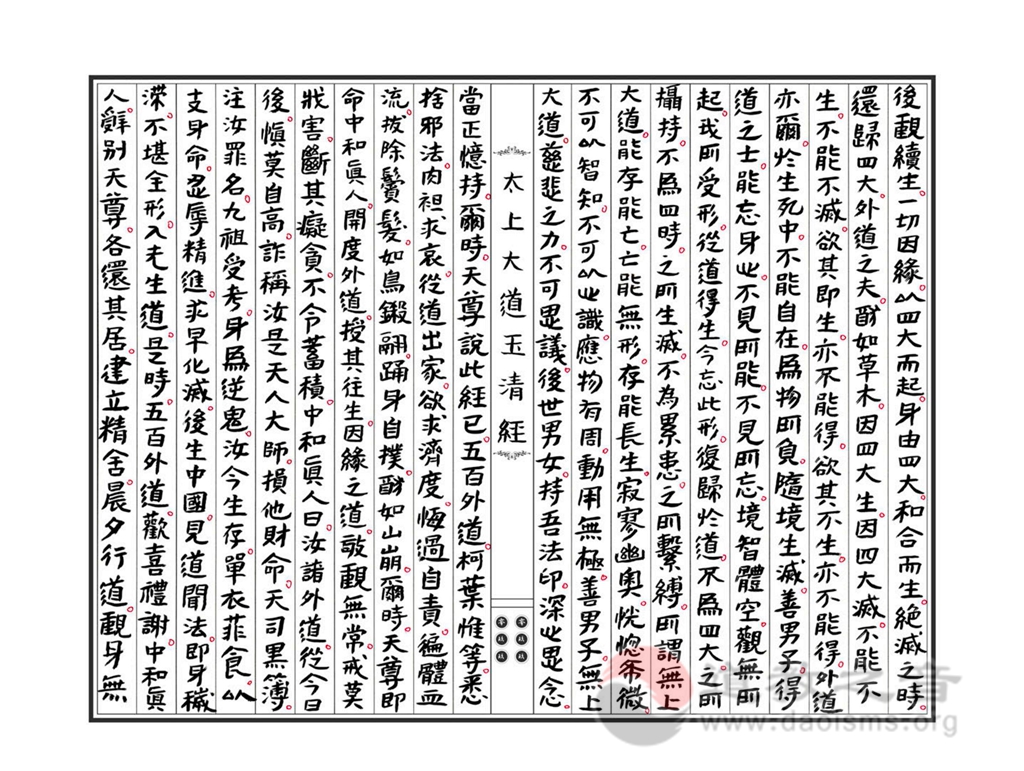 後觀續生一切因緣以四大而起身由四大和合而生絕滅之時
還歸四大外道之夫酧如草木因四大生因四大滅不能不
生不能不滅欲其即生亦不能得欲其不生亦不能得外道
亦爾於生死中不能自在為物所負隨境生滅善男子得
道之士能忘身心不見所能不見所忘境智體空觀無所
起我所受形從道得生今忘此形復歸於道不為四大之所
攝持不為四時之所生滅不為累患之所繫縛所謂無上
大道能存能亡亡能無形存能長生寂寥幽奧恍惚希微
不可以智知不可以心識應物有周動用無極善男子無上
大道慈悲之力不可思議後世男女持吾法印深心思念
太上大道玉清經
當正憶持爾時天尊說此經已五百外道柯葉惟等悉
捨邪法肉袒求哀從道出家欲求濟度悔過自責遍體血
流拔除鬢髮如鳥鍛翮踊身自撲酧如山崩爾時天尊即
命中和真人開度外道授其往生因緣之道諦觀無常戒莫
戕害斷其癡貪不令蓄積中和真人曰汝諸外道從今日
後慎莫自高詐稱汝是天人大師損他財命天司黑簿
注汝罪名九祖受考身為逆鬼汝今生存單衣菲食以
支身命忍辱精進求早化滅後生中國見道聞法即身穢
滓不堪全形入无生道是時五百外道歡喜禮謝中和真
人辭別天尊各還其居建立精舍晨夕行道觀身無
道教之音
www.daoisms.org